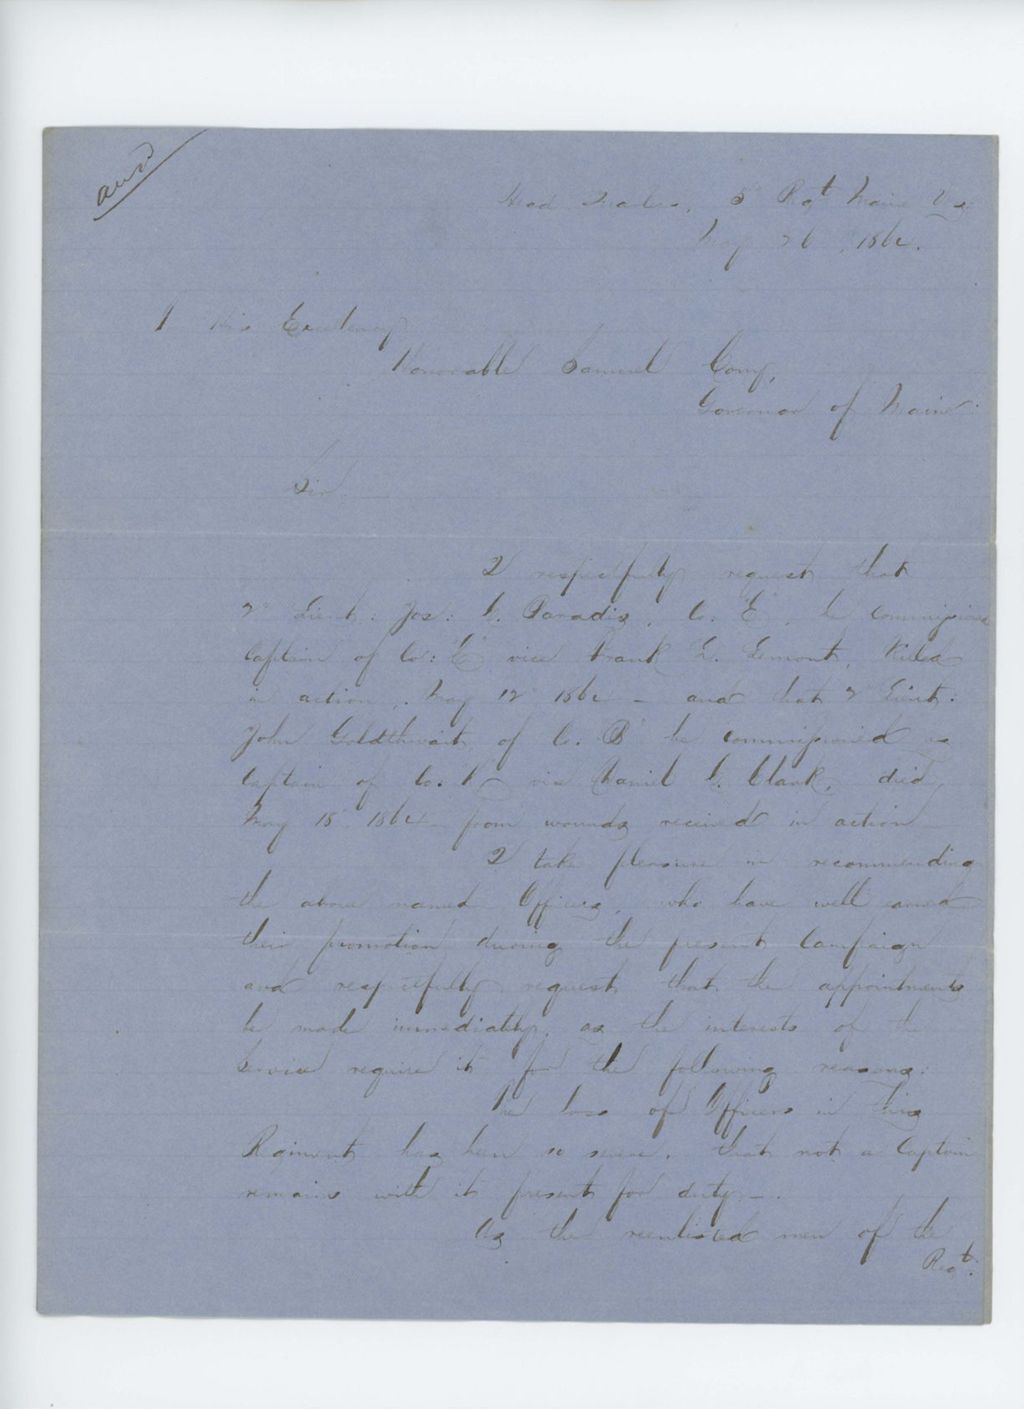 ansd
Head Quarters, 5" Regt Maine Vols.
May 26, 1864.
His Excellency
Honorable Samuel Cony,
Governor of Maine
Sir
I respectfully request that
2" Lieut: Jos: G. Paradis, Co. "E", be commissioned
Captain of Co: "E" vice Frank L. Lemont, Killed
in action, May 12" 1864 – and that 2" Lieut.
John Goldthwait of Co. "B" be commissioned as
Captain of Co. vice Daniel C. Clark, died
May 15" 1864 from wounds received in action
I take pleasure in recommending
the above named Officers, who have well earned
their promotion during the present Campaign
and respectfully request that the appointments
be made immediately, as the interests of the
Service require it for the following reasons:
The loss of Officers in this
Regiment has been so severe, that not a Captain
remains with it present for duty –.
As the reenlisted men of the
Regt.